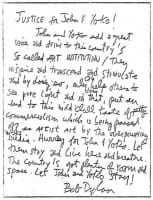 JUSTICE for John & Yoko!
John and Yoko add a great
voice and drive to this country's
So called ART INSTITUTION / They
inspire and transcend and stimulate
and by doing so, only help others to
see pure light and in doing that, put an
end to this mild dull taste of petty
commercialism which is being passed
off as artist art by the overpowering
mass media. Hurray for John & Yoko. Let
them stay and live here and breathe.
The country's got plenty of room and
space. Let John and Yoko stay!
Bob Dylan